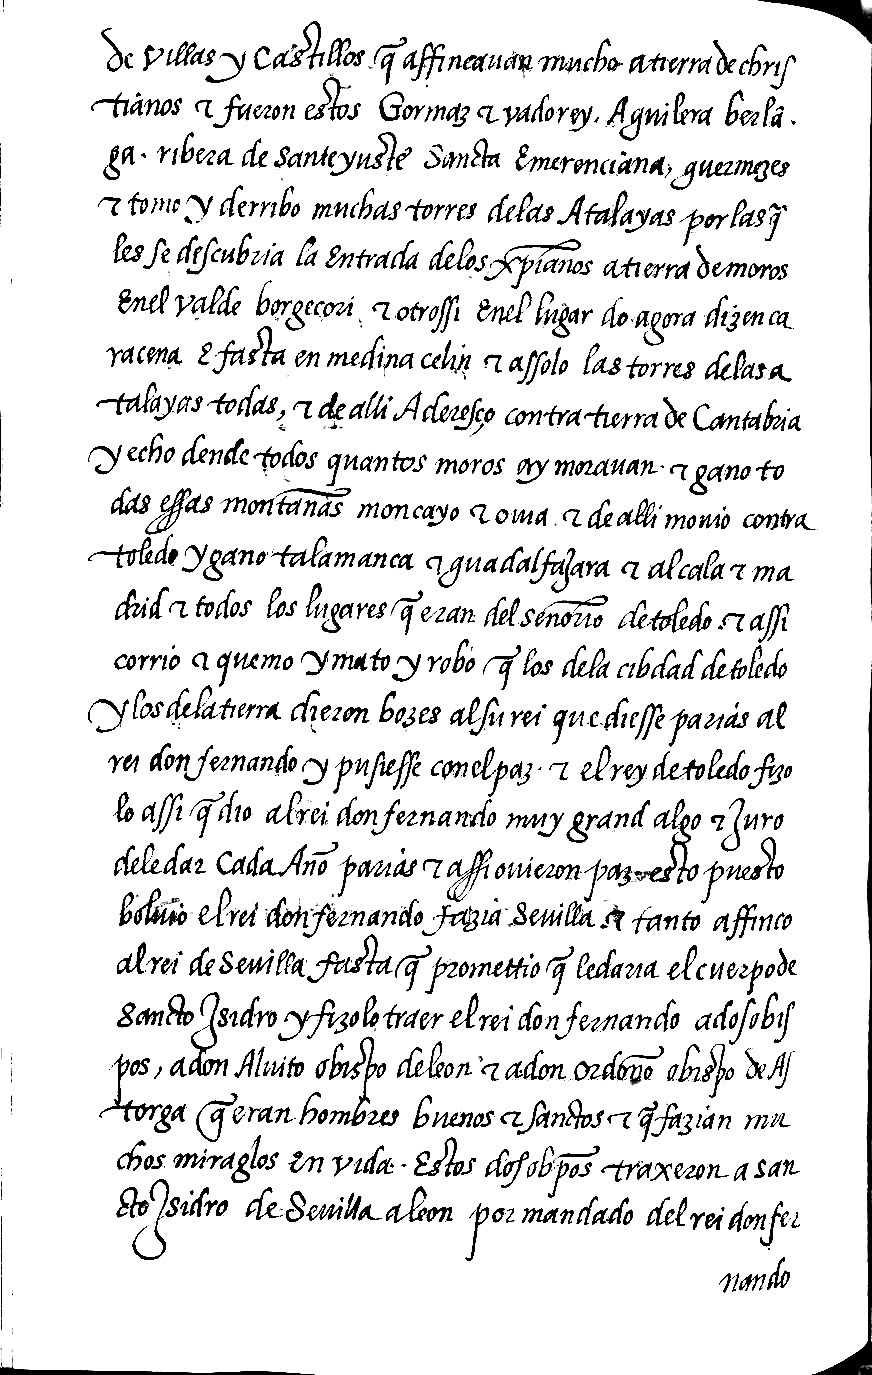 de villas y castillos q̃ affincauan mucho a tierra de chris
tianos τ fueron estos Gormaz τ vadorey. Aguilera berlã.
ga. ribera de santeyuste Sancta Emerenciana, guermezes
τ tomo y derribo muchas torres delas Atalayas por las q̃
les se descubria la Entrada delos xp̃ianos a tierra de moros
Enel valde borgecori τ otrossi Enel lugar do agora dizen ca
racena E fasta en medina celin τ assolo las torres delas a
talayas todas, τ de alli Aderesço contra tierra de Cantabria
y echo dende todos quantos moros ay morauan. τ gano to
das essas montãnas moncayo τ oma τ de alli mouio contra
toledo y gano talamanca τ guadalfajara τ alcala τ ma
drid τ todos los lugares q̃ eran del señorio de toledo τ assi
corrio τ quemo y mato y robo q̃ los dela cibdad de toledo
y los dela tierra dieron bozes al su rei que diesse parias al
rei don fernando y pusiesse conel paz. τ el rey de toledo fizo
lo assi q̃ dio al rei don fernando muy grand algo τ Juro
dele dar Cada Año parias τ assi ouieron paz esto puesto
boluio el rei don fernando fazia Seuilla τ tanto affinco
al rei de Seuilla fasta q̃ promettio q̃ le daria el cuerpo de
Sancto Isidro y fizolo traer el rei don fernando a dos obis
pos, a don Aluito obispo de leon τ a don ordoño obispo de As
torga q̃ eran hombres buenos τ sanctos τ q̃ fazian mu
chos miraglos En vida. Estos dos obp̃os traxeron a san
cto Isidro de Seuilla a leon por mandado del rei don fer
nando